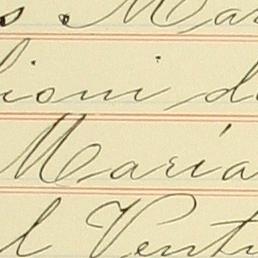 s Mar
lioni de
María
l Ventu